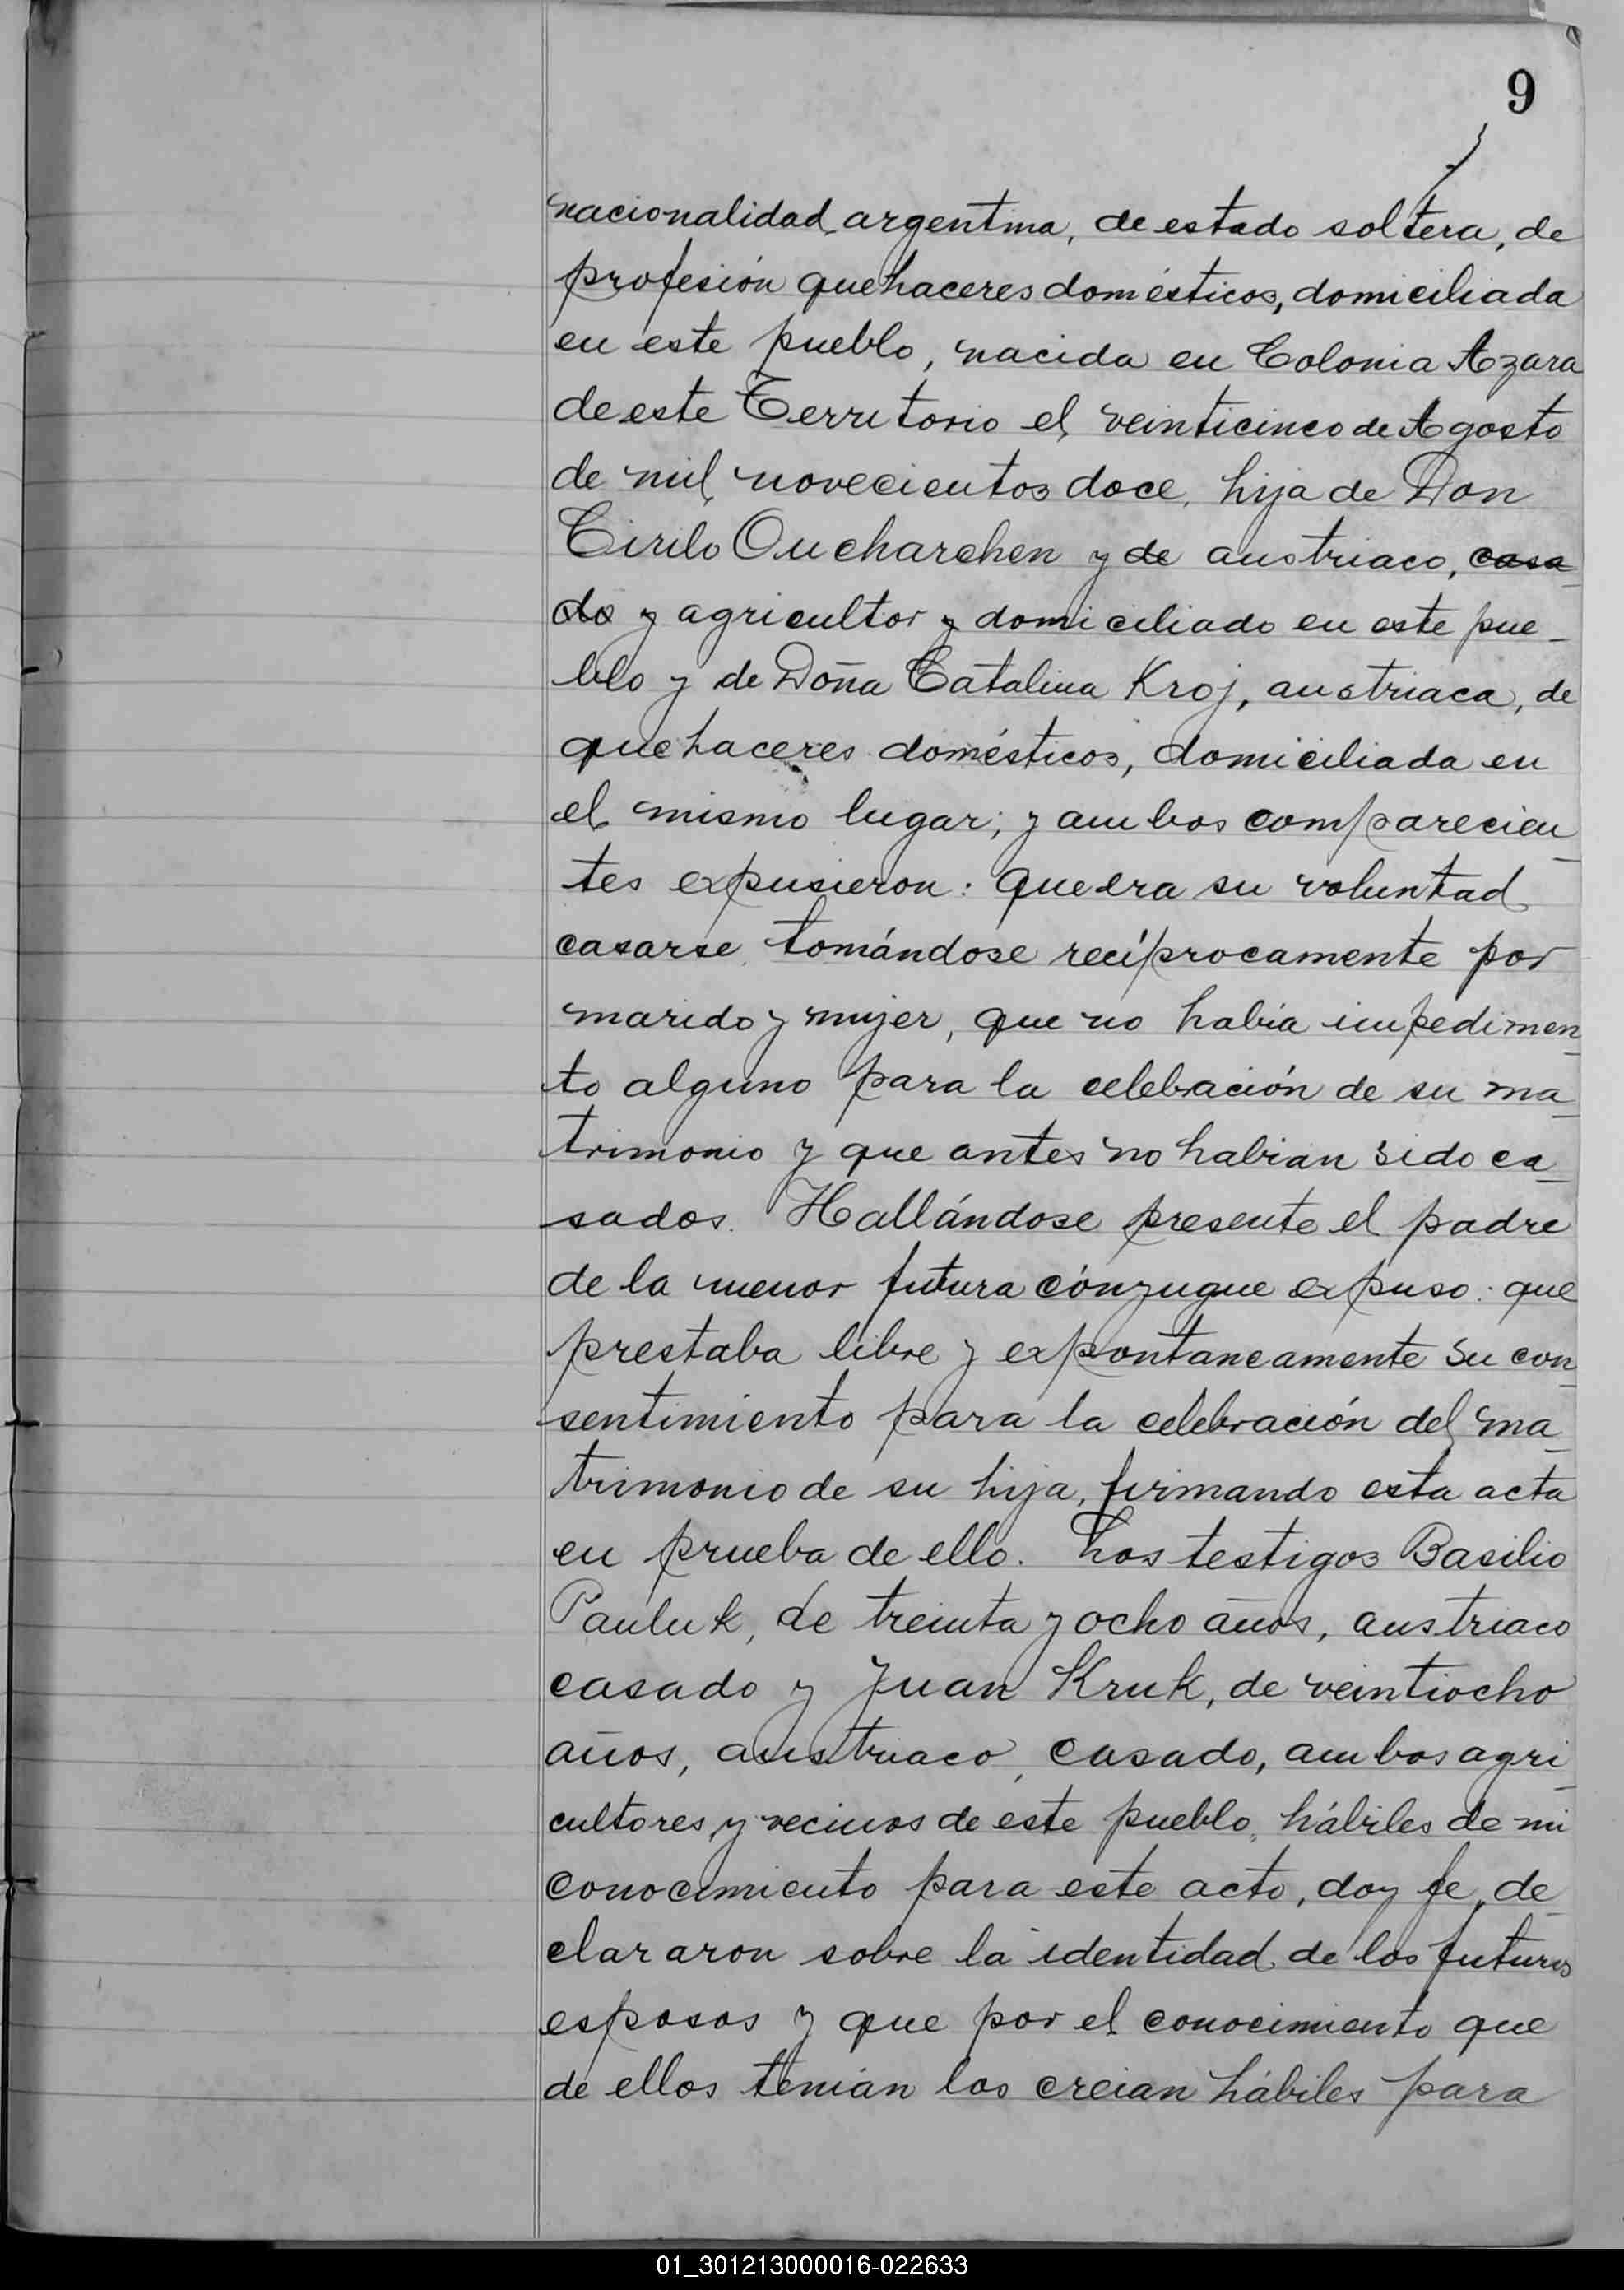 9
nacionalidad argentina, de estado soltera, de
profesión quehaceres domésticos, domiciliada
en este pueblo, nacida en Colonia Azara
de este Territorio el veinticinco de Agosto
de mil novecientos doce, hija de Don
Cirilo Oucharchen y de austriaco, casa
do y agricultor y domiciliado en este pue-
blo y de Doña Catalina Kroj, austriaca, de
quehaceres domésticos, domiciliada en
el mismo lugar; y ambos comparecien
tes expusieron: que era su voluntad
casarse tomándose recíprocamente por
marido y mujer, que no habia impedimen
to alguno para la celebración de su ma
trimonio y que antes no habian sido ca
sados. Hallándose presente el padre
de la menor futura cónyugue expuso: que
prestaba libre y expontaneamente su con
sentimiento para la celebración del ma
trimonio de su hija, firmando esta acta
en prueba de ello. Los testigos Basilio
Pauluk, de treinta y ocho años, austriaco
casado y Juan Kruk, de veintiocho
años, austriaco, casado, ambos agri
cultores y vecinos de este pueblo, hábiles de mi
conocimiento para este acto, doy fe, de
clararon sobre la identidad de los futuros
esposos y que por el conocimiento que
de ellos tenian los creian hábiles para
01_301213000016-022633